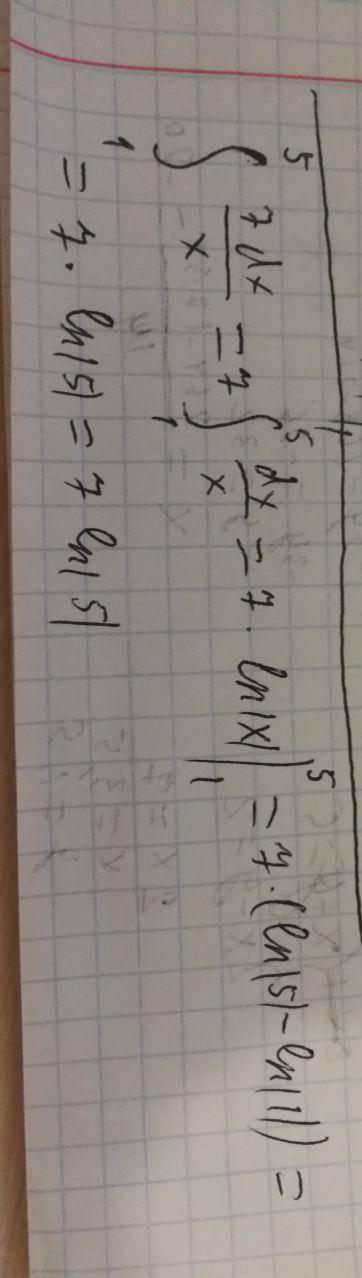 ∫₁⁵ 7dx/x = 7 ∫₁⁵ dx/x = 7 · ln|x| |₁⁵ = 7 · (ln|5| - ln|1|) =
= 7 · ln|5| = 7 ln|5|